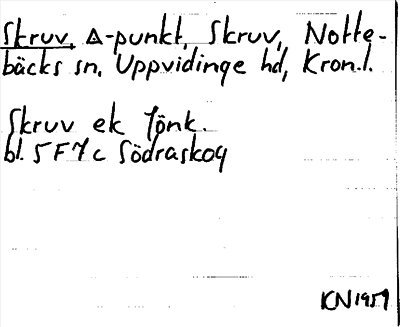 Skruv, △-punkt, Skruv, Notte-
bäcks sn, Uppvidinge hd, Kron.l.
Skruv ek Jönk.
bl. 5F7c Södraskog
KN1959